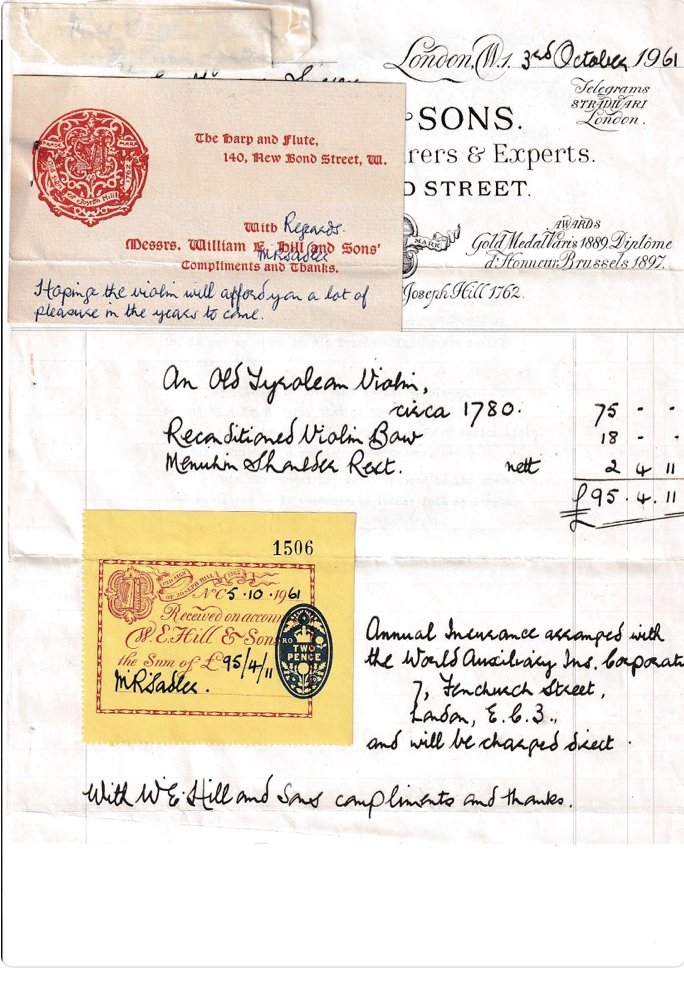 London, W.1. 3rd October 1961
Telegrams
STRADIVARI
London.
SONS.
rers & Experts.
D STREET.
MARK
AWARDS
Gold Medal Paris 1889. Diplôme
d'Honneur Brussels 1897.
Joseph Hill 1762.
The Harp and Flute,
140, New Bond Street, W.
With Regards.
Messrs. William E. Hill and Sons'
MRSadler
Compliments and Thanks.
Hoping the violin will afford you a lot of
pleasure in the years to come.
An Old Tyrolean Violin,
circa 1780. 75 - -
Reconditioned Violin Bow 18 - -
Menuhin Shoulder Rest. nett 2 4 11
£95.4.11
1506
OLD SIGN
OF JOSEPH HILL 1762
No C 5.10.1961
Received on accoun
W. E. Hill & Sons
the Sum of £95/4/11
MRSadler.
TWO
PENCE
Annual Insurance arranged with
the World Auxiliary Ins. Corporati
7, Fenchurch Street,
London, E.C.3.,
and will be charged direct.
With W.E. Hill and Sons compliments and thanks.